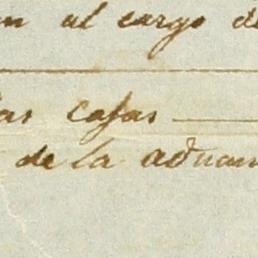 en al cargo de
las casas
de la aduan